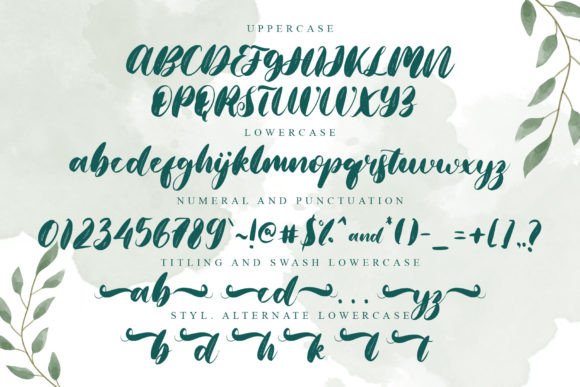 UPPERCASE
ABCDEFGHIJKLMN
OPQRSTUVWXYZ
LOWERCASE
abcdefghijklmnopqrstuvwxyz
NUMERAL AND PUNCTUATION
0123456789`~!@#$%^and*()-_=+[],.?
TITLING AND SWASH LOWERCASE
ab cd ... yz
STYL. ALTERNATE LOWERCASE
b d h k l t